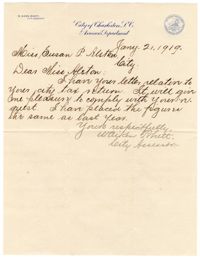 City of Charleston, S.C.
Assessor's Department
Jany. 21, 1919.
Miss Susan P. Alston,
City.
Dear Miss Alston:
I have your letter, relative to
your city tax return. It will give
me pleasure to comply with your re-
quest. I have placed the figures
the same as last year.
Yours respectfully,
City Assessor